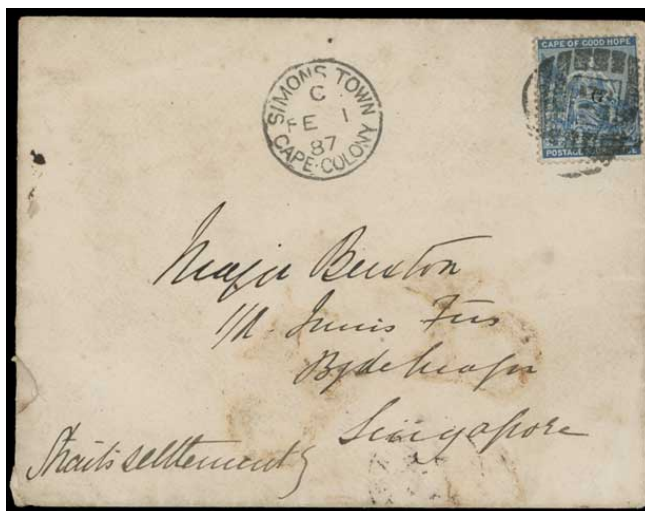 CAPE OF GOOD HOPE
POSTAGE
SIMONS TOWN
C
FE 1
87
CAPE COLONY
Major Buxton
Fus
Bde Major
Singapore
Straits settlements